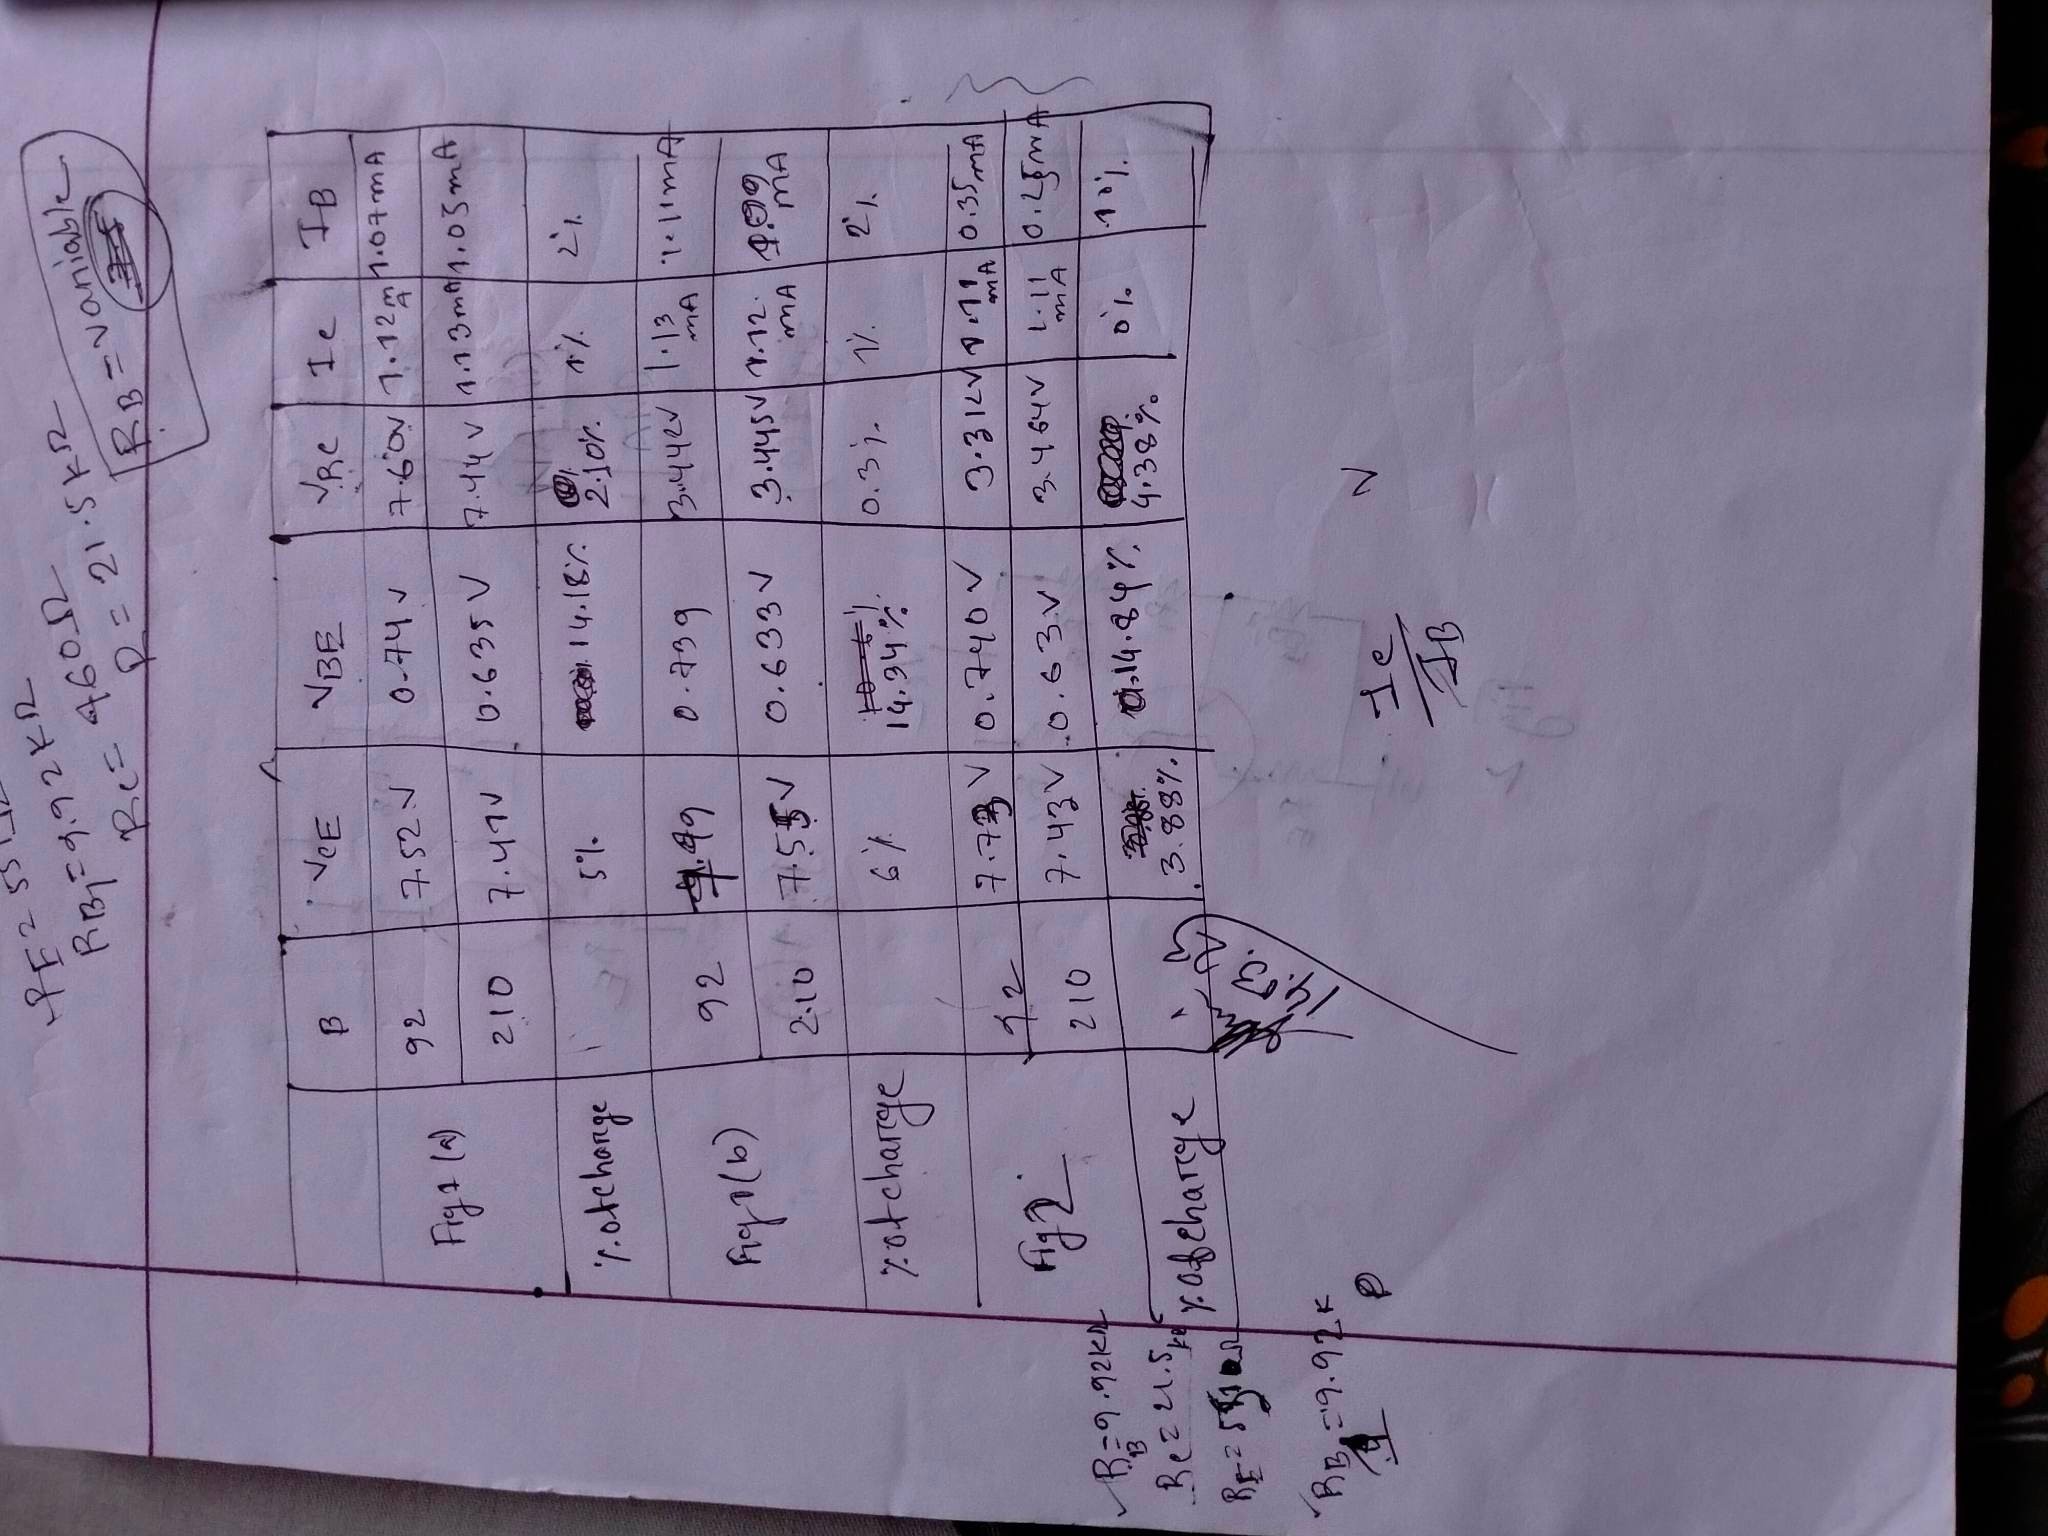 RB1 = 9.92KΩ
Rc = 460Ω
R = 21.5KΩ
RB = variable
B VCE VBE VRC Ic IB
Fig 1 (a) 92 7.52 V 0.74 V 7.60V 1.12mA 1.07mA
210 7.41V 0.635 V 7.44 V 1.13mA 1.05mA
% of change 5% 14.18% 2.10% 1% 2%
Fig 1(b) 92 0.739 3.442V 1.13 mA 1.11mA
210 7.55V 0.633V 3.445V 1.12 mA 1.09 mA
% of change 6% 14.34% 0.3% 1% 2%
Fig 2 92 7.73 V 0.740 V 3.312V 1.11 mA 0.35mA
210 7.43V 0.63V 3.464V 1.11 mA 0.25mA
% of change 3.88% 14.84% 4.38% 0% 10%
RB = 9.92KΩ
Rc = 21.5K
RE =
RB1 = 9.92K
14.03.23
Ic
IB